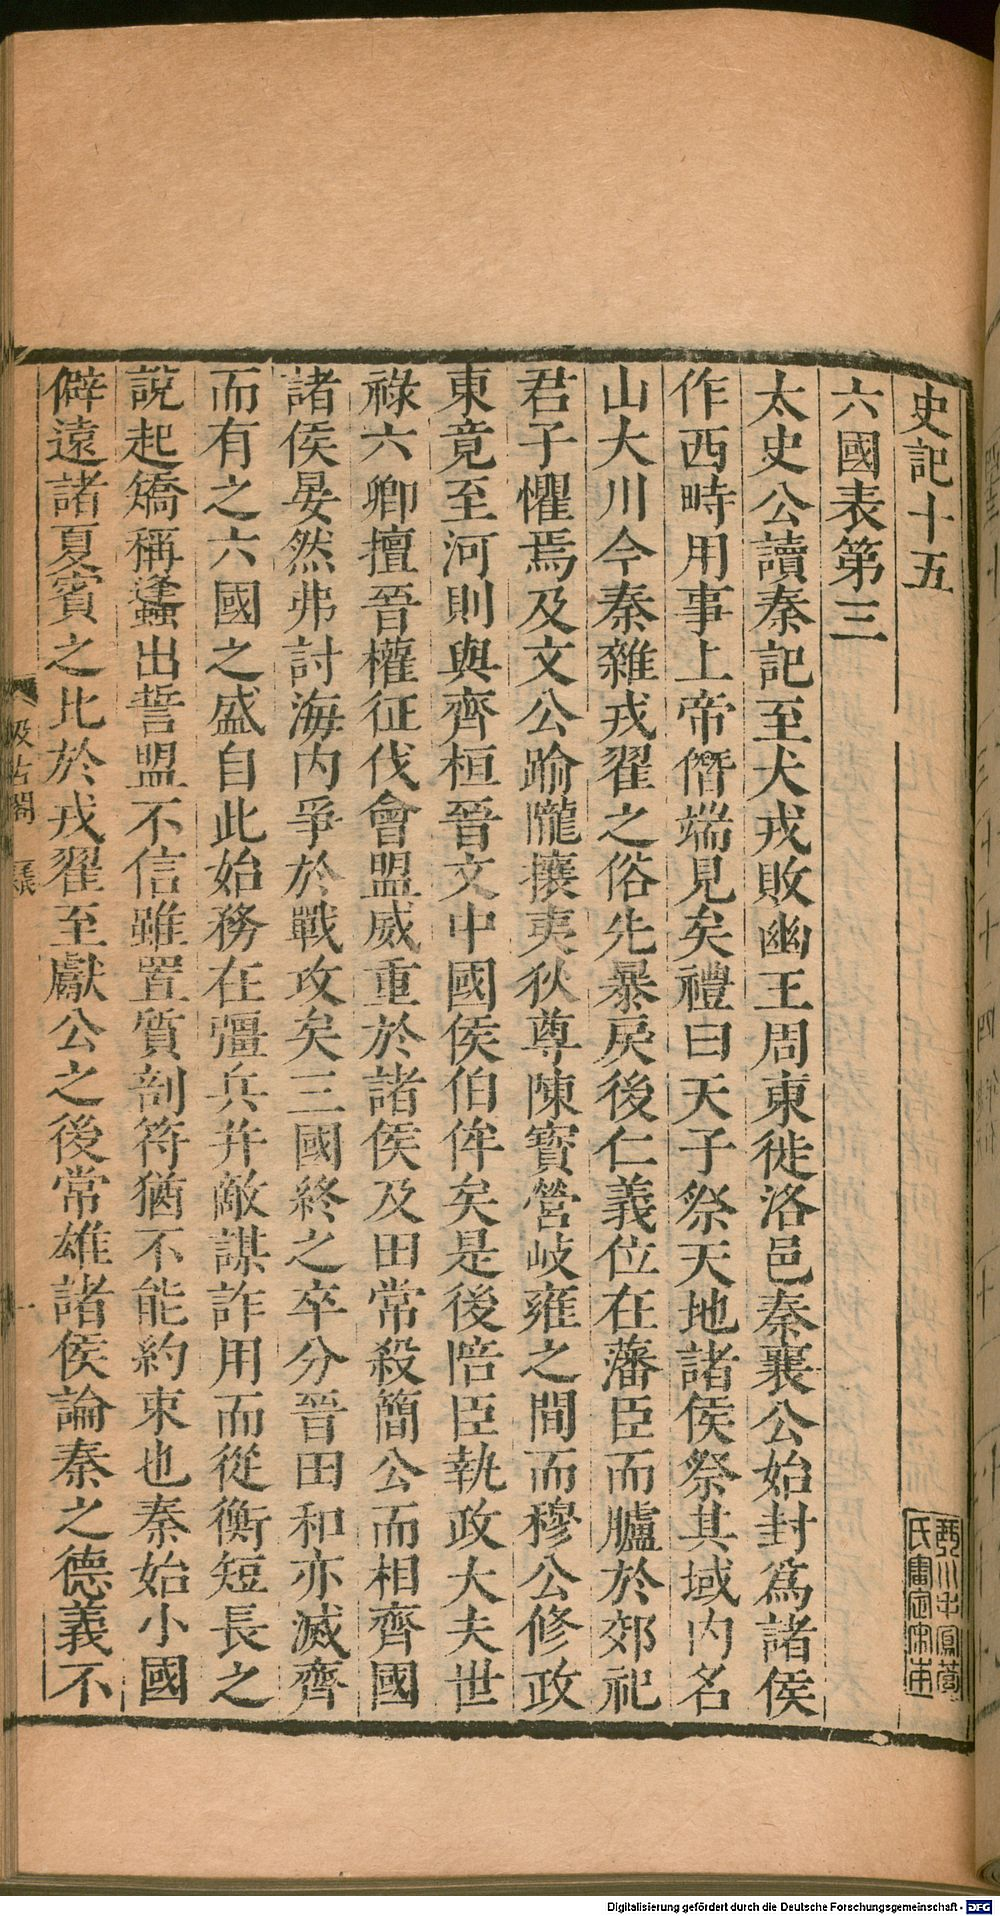 史記十五
六國表第三
太史公讀秦記至犬戎敗幽王周東徙洛邑秦襄公始封爲諸侯
作西畤用事上帝僭端見矣禮曰天子祭天地諸侯祭其域內名
山大川今秦雜戎翟之俗先暴戾後仁義位在藩臣而臚於郊祀
君子懼焉及文公踰隴攘夷狄尊陳寳營岐雍之間而穆公修政
東竟至河則與齊桓晉文中國侯伯侔矣是後陪臣執政大夫世
祿六卿擅晉權征伐會盟威重於諸侯及田常殺簡公而相齊國
諸侯晏然弗討海內爭於戰攻矣三國終之卒分晉田和亦滅齊
而有之六國之盛自此始務在彊兵幷敵謀詐用而從衡短長之
說起矯稱蠭出誓盟不信雖置質剖符猶不能約束也秦始小國
僻遠諸夏賓之比於戎翟至獻公之後常雄諸侯論秦之德義不
汲古閣
一
Digitalisierung gefördert durch die Deutsche Forschungsgemeinschaft - DFG